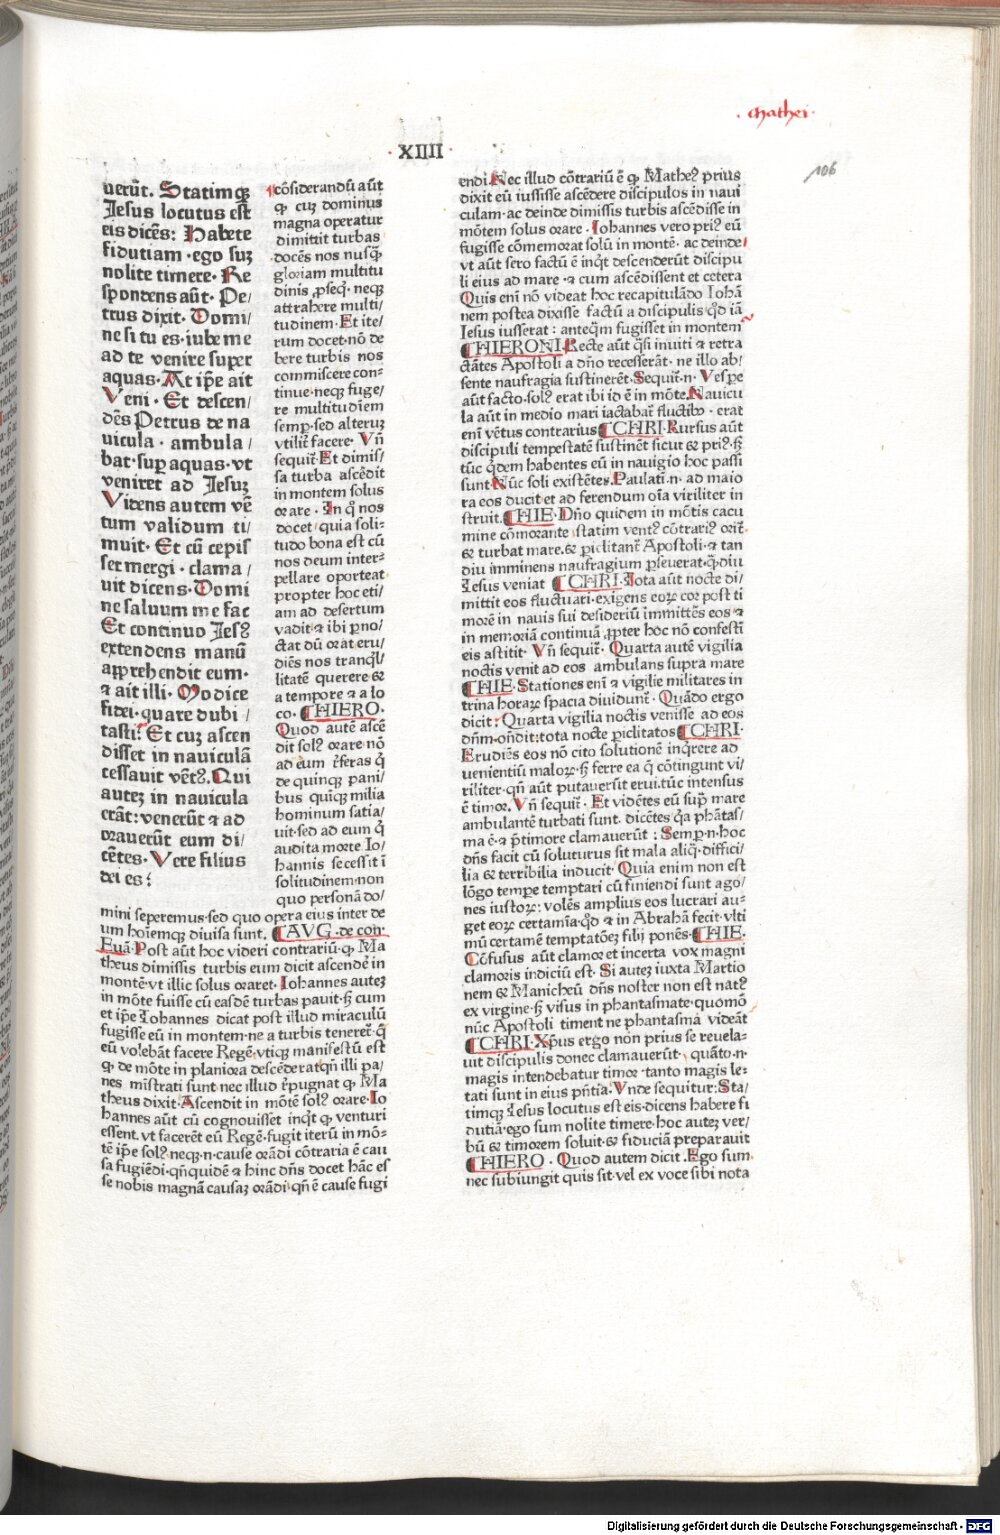 · Mathei ·
· XIIII ·
106
uerūt. Statimqꝫ
Jesus locutus est
eis dicēs: Habete
fidutiam ·ego suꝫ
nolite timere· Re
spondens aūt· Pe/
trus dixit· Domi/
ne si tu es·iube me
ad te venire super
aquas· At ip̄e ait
Veni · Et descen/
dēs Petrus de na
uicula · ambula/
bat·suꝑ aquas·vt
veniret ad Jesuꝫ
Videns autem vē
tum validum ti/
muit· Et cū cepis
set mergi · clama/
uit dicens· Domi
ne saluum me fac
Et continuo Jesꝰ
extendens manū
apprehendit eum·
⁊ ait illi· Modice
fidei·quare dubi/
tasti? Et cuꝫ ascen
disset in nauiculā
cessauit vētꝰ. Qui
auteꝫ in nauicula
erāt: venerūt ⁊ ad
orauerūt eum di/
cētes· Vere filius
dei es:
cōsiderandū aūt
ꝙ cuꝫ dominus
magna operatur
dimittit turbas
docēs nos nusqꝫ̄
gloriam multitu
dinis ꝓseqͥ· neqꝫ
attrahere multi/
tudinem· Et ite/
rum docet·nō de
bere turbis nos
commiscere con=
tinue·neqꝫ fuge/
re multitudīem
semꝑ·sed alteruꝫ
vtilit̄ facere· Vn̄
sequit̄· Et dimis/
sa turba ascēdit
in montem solus
orare · In qͦ nos
docet quia soli=
tudo bona est cū
nos deum inter=
pellare oporteat
propter hoc eti/
am ad desertum
vadit·⁊ ibi ꝑno/
ctat dū orat·eru/
diēs nos tranqͥl/
litatē querere &
a tempore ⁊ a lo
co· HIERO·
Quod autē ascē
dit solꝰ orare·nō
ad eum r̄feras qͥ
de quinqꝫ pani/
bus quīqꝫ milia
hominum satia/
uit·sed ad eum qͥ
audita morte Io/
hannis secessit ī
solitudinem·non
quo personā do/
mini seperemus·sed quo opera eius inter de
um hoīemqꝫ diuisa sunt. AVG·de con·
Euā· Post aūt hoc videri contrariū·ꝙ Ma
theus dimissis turbis eum dicit ascendēr in
montē·vt illic solus oraret· Iohannes auteꝫ
in mōte fuisse cū easdē turbas pauit·ꝫ cum
et ip̄e Iohannes dicat post illud miraculū
fugisse eū in montem·ne a turbis teneret̄·qͥ
eū volebāt facere Regē·vtiqꝫ manifestū est
ꝙ de mōte in planiora descēderāt·qn̄ illi pa/
nes mīstrati sunt·nec illud r̄pugnat ꝙ Ma
theus dixit· Ascendit in mōtē solꝰ orare· Io
hannes aūt cū cognouisset inqͥt ꝙ venturi
essent·vt facerēt eū Regē·fugit iterū in mō=
tē ip̄e solꝰ·neqꝫ·n·cause orādi cōtraria ē cau
sa fugiēdi·qn̄quidē ⁊ hinc dn̄s docet hāc es
se nobis magnā causaꝫ orādi·qn̄ ē cause fugi
endi· Nec illud cōtrariū ē ꝙ Matheꝰ prius
dixit eū iussisse ascēdere discipulos in naui
culam·ac deinde dimissis turbis ascēdisse in
mōtem solus orare· Iohannes vero priꝰ eū
fugisse cōmemorat solū in montē· ac deinde
vt aūt sero factū ē inqͥt descenderūt discipu
li eius ad mare·⁊ cum ascēdissent et cetera
Quis enī nō videat hoc recapitulādo Iohā
nem postea dixisse factū a discipulis qͦd iā
Iesus iusserat: anteqͣm fugisset in montem
HIERONI· Recte aūt qͣsi inuiti ⁊ retra
ctātes Apostoli a dn̄o recesserāt· ne illo ab/
sente naufragia sustinerēt· Sequit̄·n· Vespe
aūt facto·solꝰ erat ibi·id ē in mōte. Nauicu
la aūt in medio mari iactabat̄ fluctibꝰ · erat
enī vētus contrarius CHRI· Rursus aūt
discipuli tempestatē sustinēt sicut & priꝰ·ꝫ
tūc qͥdem habentes eū in nauigio hoc passi
sunt· Nūc soli existētes. Paulatī·n· ad maio
ra eos ducit·et ad ferendum oīa viriliter in
struit. HIE· Dn̄o quidem in mōtis cacu
mine cōmorante statim ventꝰ cōtrariꝰ orit̄·
& turbat mare·& ꝑiclitant̄ Apostoli·⁊ tan
diu imminens naufragium ꝑseuerat·qͣmdiu
Iesus veniat CHRI· Tota aūt nocte di/
mittit eos fluctuari·exigens eoꝝ cor post ti
morē in nauis sui desideriū īmittēs eos ⁊
in memoriā continuā ꝓpter hoc nō confestī
eis astitit· Vn̄ sequit̄· Quarta autē vigilia
noctis venit ad eos ambulans supra mare
HIE· Stationes enī ⁊ vigilie militares in
trina horaꝝ spacia diuidunt̄· Quādo ergo
dicit: Quarta vigilia noctis venisse ad eos
dn̄m·on̄dit:tota nocte ꝑiclitatos CHRI·
Erudiēs eos nō cito solutionē inqͥrere ad
uenientiū maloꝝ·ꝫ ferre ea qͥ cōtingunt vi/
riliter·qn̄ aūt putauerūt erui·tūc intensus
ē timor. Vn̄ sequit̄· Et vidētes eū supͣ mare
ambulantē turbati sunt· dicētes qͣ phātas/
ma ē·⁊ p̄timore clamauerūt: Semꝑ·n·hoc
dn̄s facit cū soluturus sit mala aliqͣ·diffici/
lia & terribilia inducit· Quia enim non est
lōgo tempe temptari cū finiendi sunt ago/
nes iustoꝝ: volēs amplius eos lucrari au=
get eoꝝ certamīa·qͦd ⁊ in Abrahā fecit·vlti
mū certamē temptatōeꝫ filij ponēs· HIE·
Cōfusus aūt clamor et incerta vox magni
clamoris indiciū est· Si auteꝫ iuxta Martio
nem & Manicheū dn̄s noster non est natꝰ
ex virgine·ꝫ visus in phantasmate·quomō
nūc Apostoli timent ne phantasma videāt
CHRI· Xp̄us ergo non prius se reuela=
uit discipulis donec clamauerūt· quāto·n·
magis intendebatur timor·tanto magis le=
tati sunt in eius pn̄tia· Vnde sequitur: Sta/
timqꝫ Iesus locutus est eis·dicens habere fi
dutiā·ego sum nolite timere·hoc auteꝫ ver/
bū & timorem soluit·& fiduciā preparauit
HIERO· Quod autem dicit . Ego sum·
nec subiungit quis sit·vel ex voce sibi nota
Digitalisierung gefördert durch die Deutsche Forschungsgemeinschaft - DFG